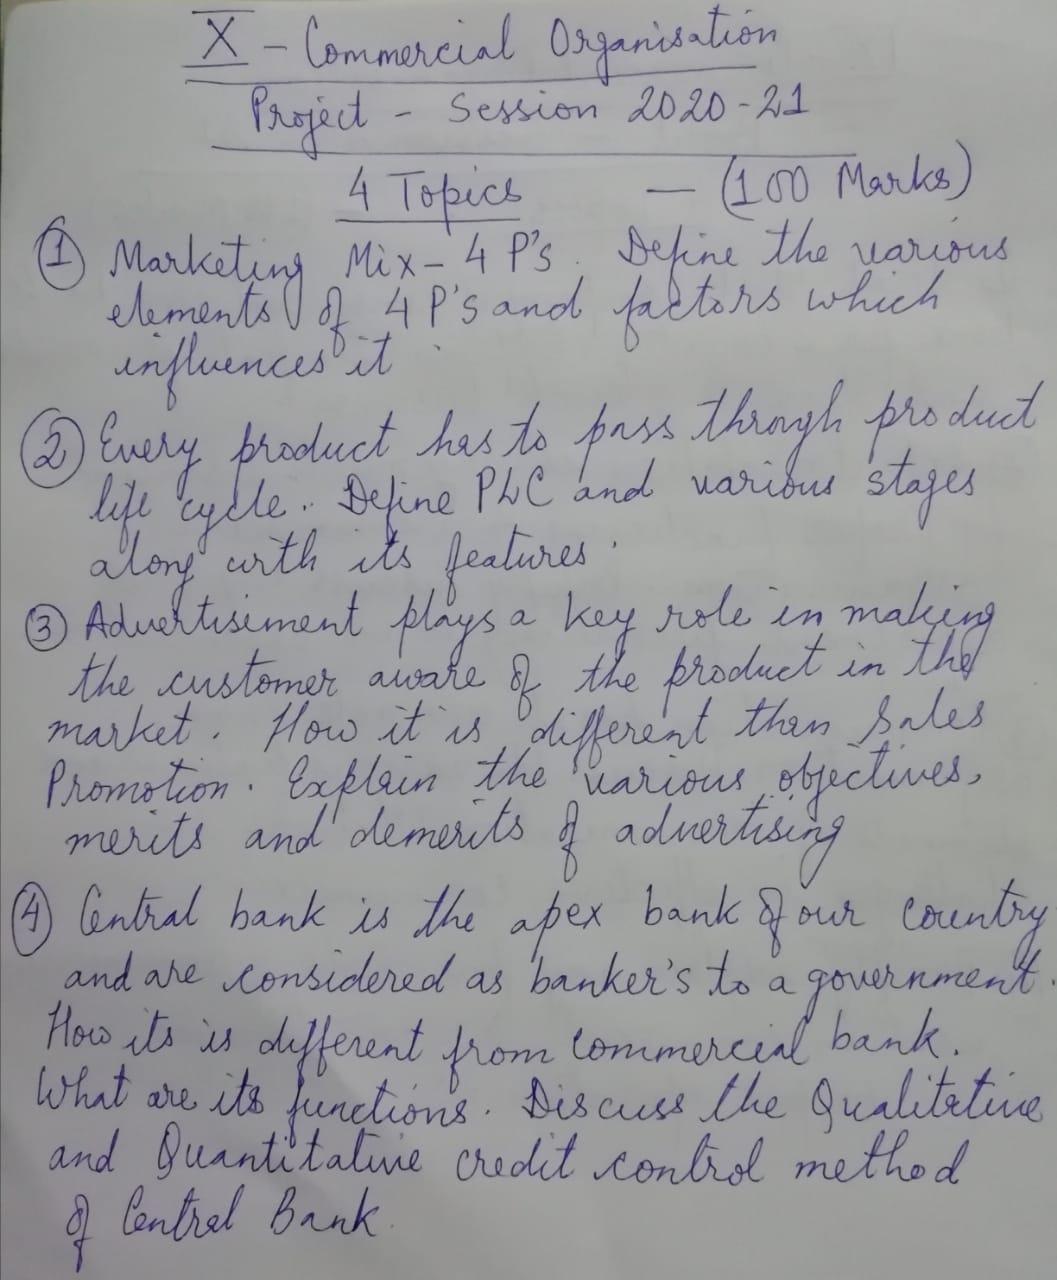 X - Commercial Organisation
Project - Session 2020-21
4 Topics - (100 Marks)
① Marketing Mix - 4 P's. Define the various
elements of 4 P's and factors which
influences it.
② Every product has to pass through product
life cycle. Define PLC and various stages
along with its features.
③ Advertisement plays a key role in making
the customer aware of the product in the
market. How it is different than Sales
Promotion. Explain the various objectives,
merits and demerits of advertising
④ Central bank is the apex bank of our country
and are considered as banker's to a government.
How its is different from Commercial bank.
What are its functions. Discuss the Qualitative
and Quantitative credit control method
of Central Bank.